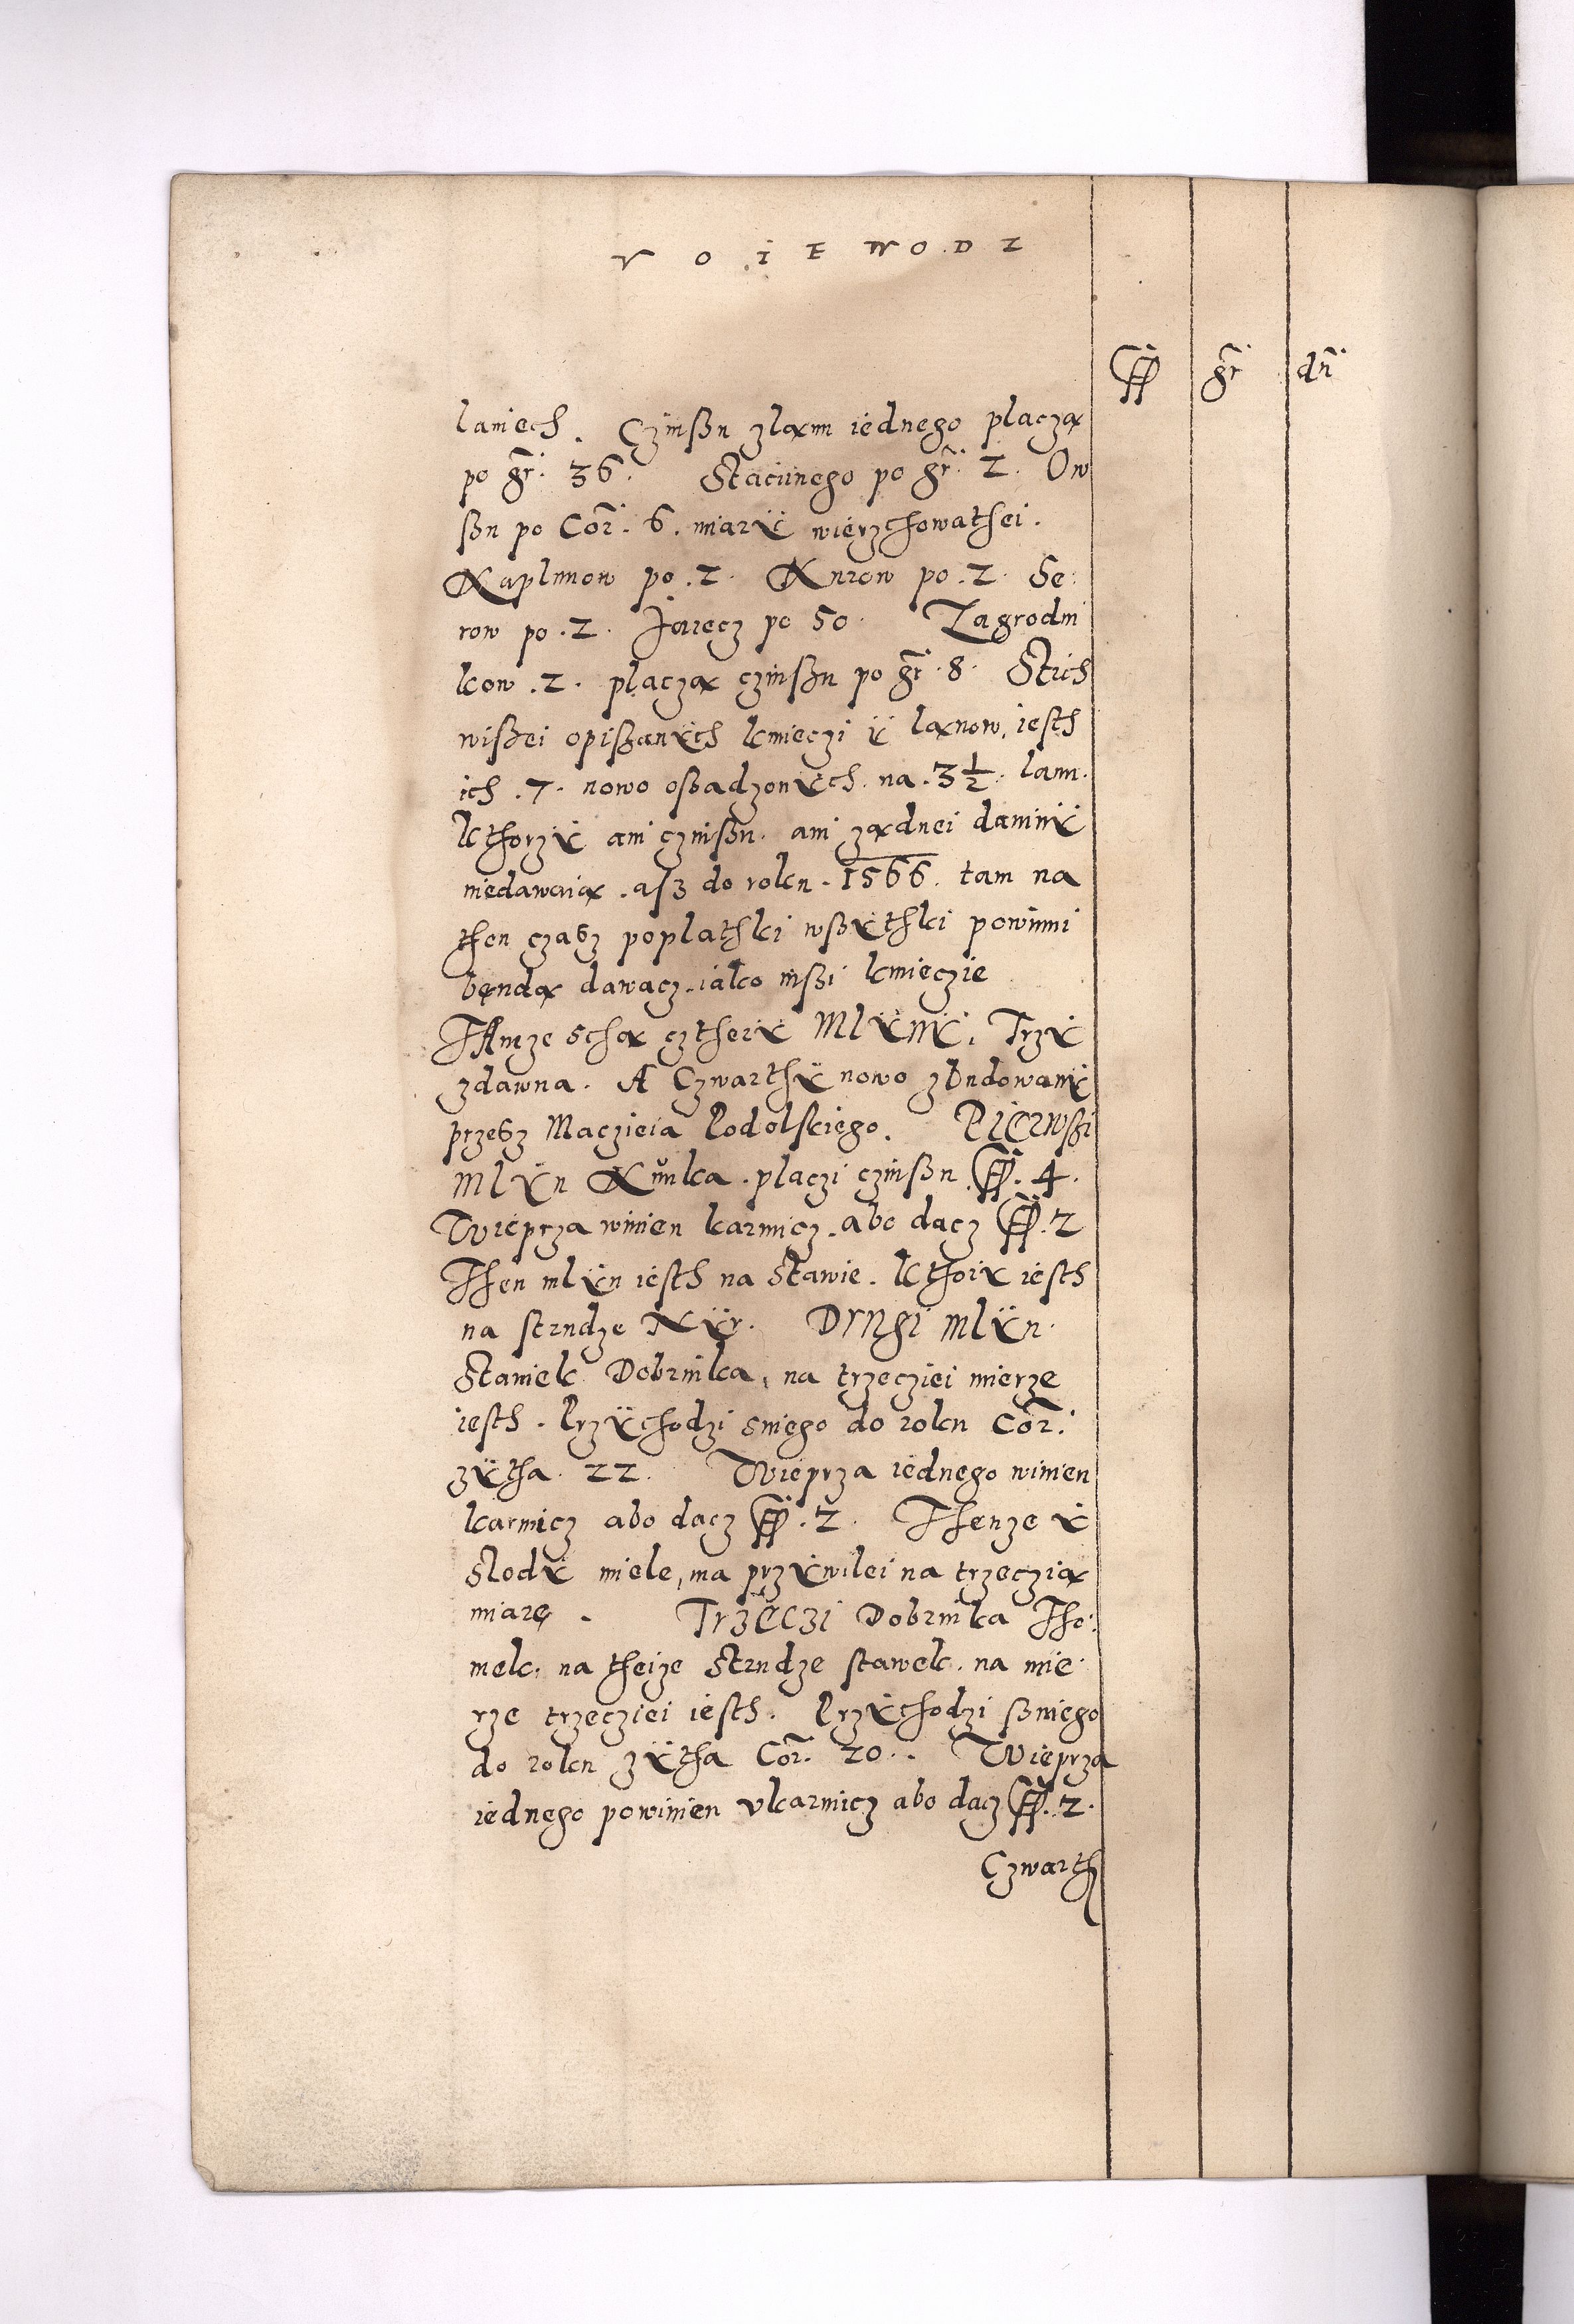 VOIEWODZ
ff gr dn
laniech. Czinßu zlanu iednego placzą
po gr. 36. Staciinego po gr. 2. Ow
ßu po Cor. 6. miarÿ wierzchowathei.
Kaplunow po .2. Kurow po .2. Se:
row po .2. Jaiecz po 50. Zagrodni
kow .2. placzą czinßu po gr. 8. Stich
wißei opißanÿch kmieczi ÿ lanow, iesth
ich .7. nowo oßadzonÿch. na .3½. lann.
kthorzÿ ani czinßu. ani żadnei daninÿ
niedawaią .asz do roku .1566. tam na
then czasz poplathki wßÿthki powinni
będą dawacz. iako inßi kmieczie
TAmze schą cztherÿ MlÿnÏ. Trzÿ
zdawna. A Czwarthÿ nowo zbudowanÿ
przesz Maczieia Podolskiego. Pierwßi
Mlÿn Kunka. placzi czinßu ff. 4.
Wieprza winien karmicz. abo dacz ff. 2
Then mlÿn iesth na Stawie. kthorÿ iesth
na strudze Nÿr. Drugi mlÿn.
Staniek Dobrinka, na trzecziei mierze
iesth. Przÿchodzi sniego do roku Cor.
zÿtha. 22. Wieprza iednego winien
karmicz abo dacz ff. 2. Thenze ÿ
Slodÿ miele, ma przÿwilei na trzeczią
miarę. Trzeczi Dobrinka Tho:
mek. na theize Strudze stawek. na mie
rze trzecziei iesth. Przÿchodzi ßniego
do roku zÿtha Cor. 20. Wieprza
iednego powinien vkarmicz abo dacz ff. 2.
Czwarth